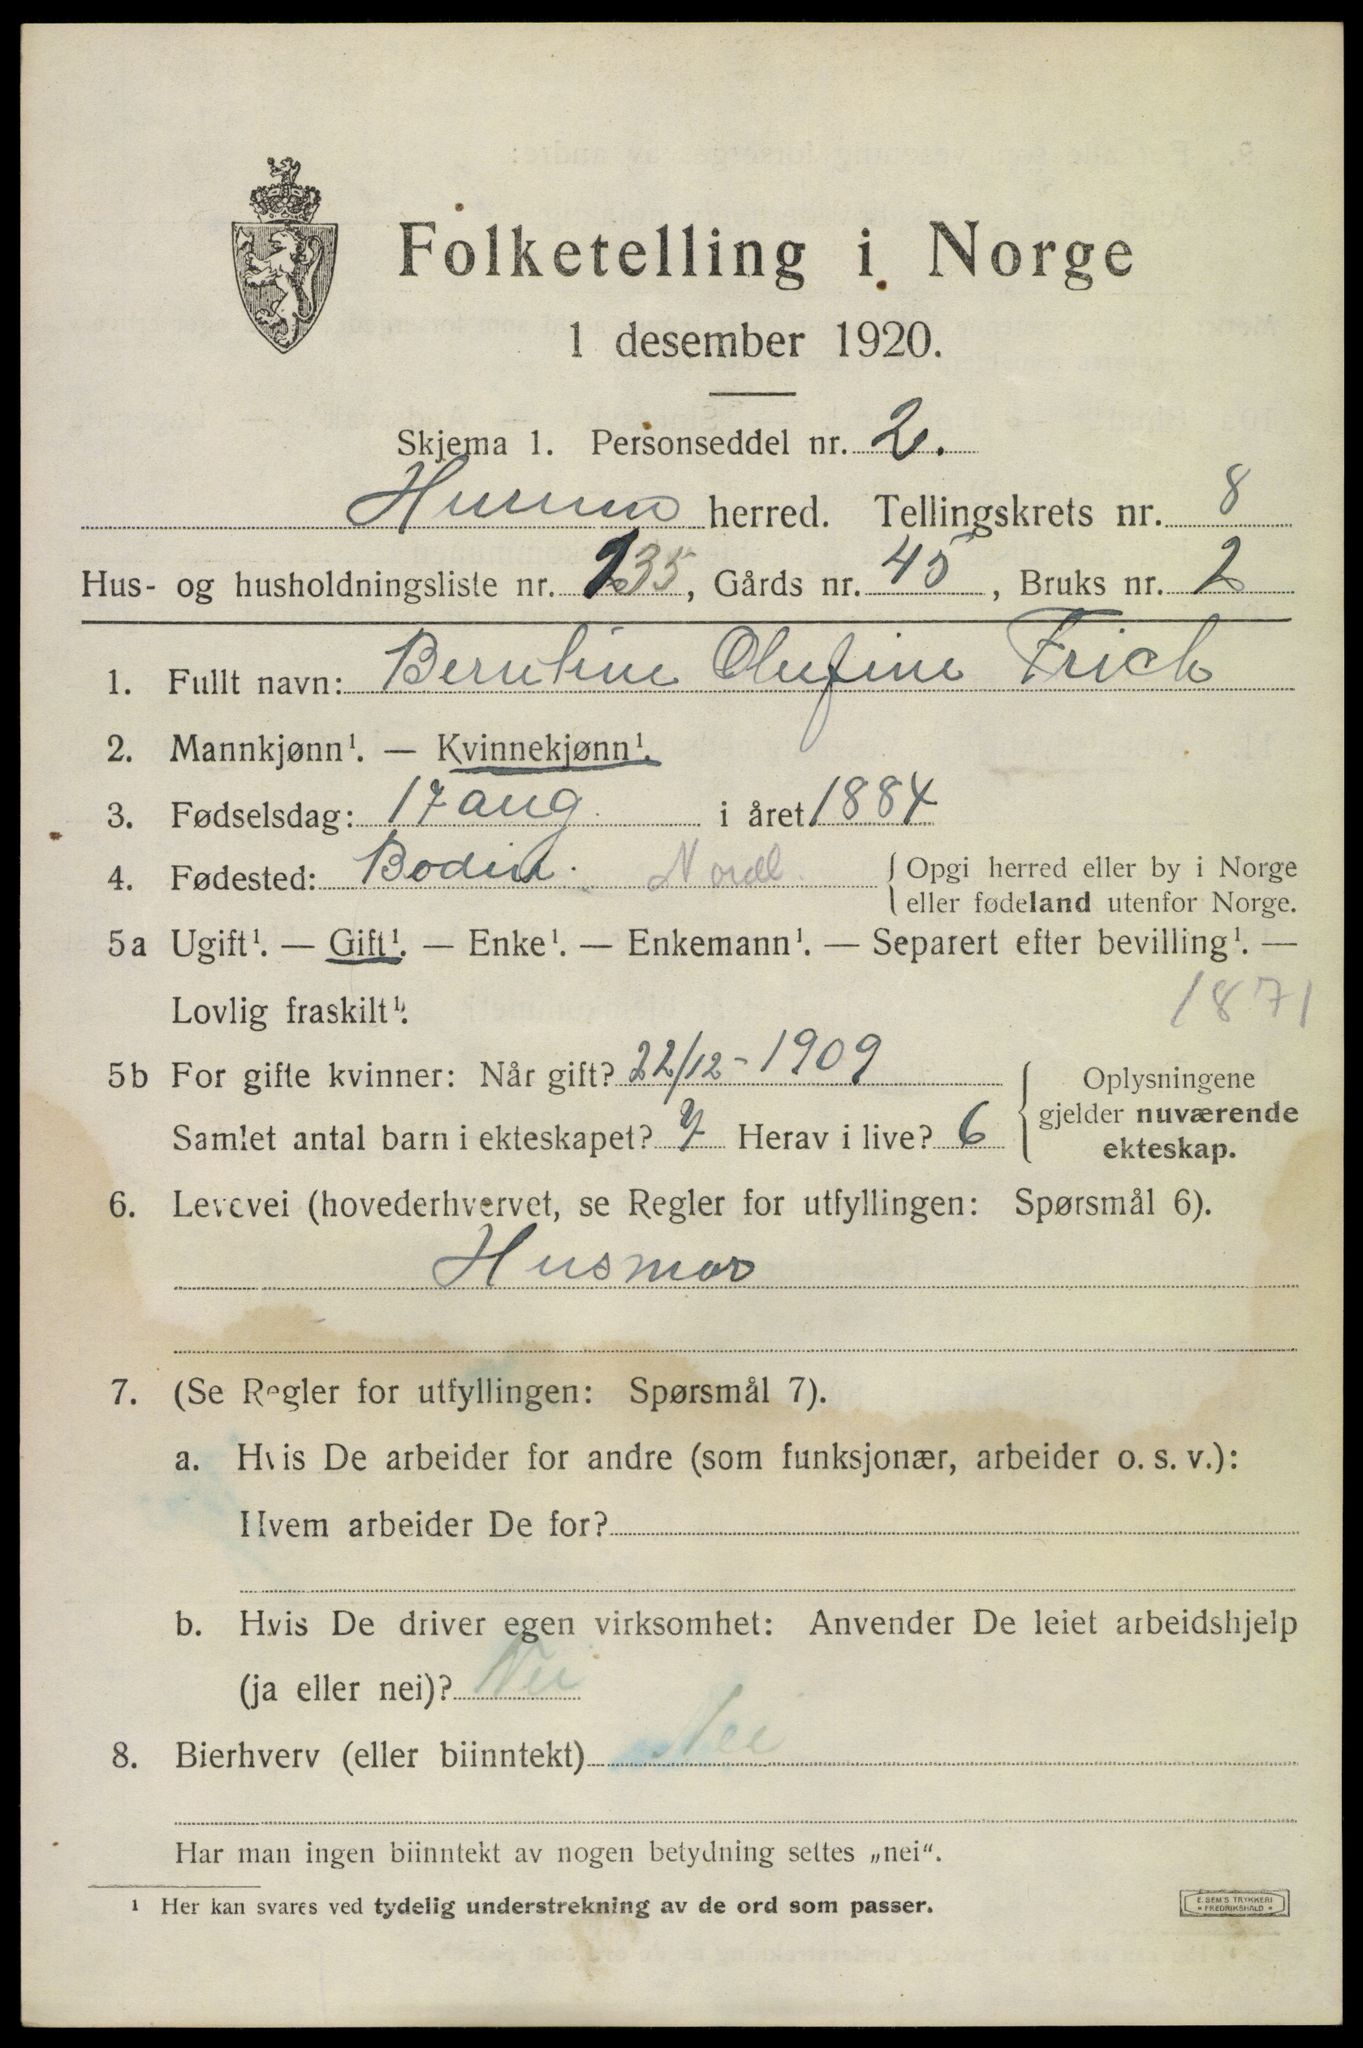 Folketelling i Norge
1 desember 1920.
Skjema 1. Personseddel nr. 2.
Hurum herred. Tellingskrets nr. 8
Hus- og husholdningsliste nr. 135, Gårds nr. 45, Bruks nr. 2
1. Fullt navn: Berntine Olufine Frich
2. Mannkjønn¹. — Kvinnekjønn¹.
3. Fødselsdag: 17 aug i året 1884
4. Fødested: Bodin. Nordl. { Opgi herred eller by i Norge
eller fødeland utenfor Norge.
5a Ugift¹. — Gift¹. — Enke¹. — Enkemann¹. — Separert efter bevilling¹. —
Lovlig fraskilt¹. 1871
5b For gifte kvinner: Når gift? 22/12 - 1909
Samlet antal barn i ekteskapet? 7 Herav i live? 6
{ Oplysningene
gjelder nuværende
ekteskap.
6. Levevei (hovederhvervet, se Regler for utfyllingen: Spørsmål 6).
Husmor
7. (Se Regler for utfyllingen: Spørsmål 7).
a. Hvis De arbeider for andre (som funksjonær, arbeider o. s. v.):
Hvem arbeider De for?
b. Hvis De driver egen virksomhet: Anvender De leiet arbeidshjelp
(ja eller nei)? Nei
8. Bierhverv (eller biinntekt) Nei
Har man ingen biinntekt av nogen betydning settes „nei“.
¹ Her kan svares ved tydelig understrekning av de ord som passer.
E. SEM'S TRYKKERI
* FREDRIKSHALD *